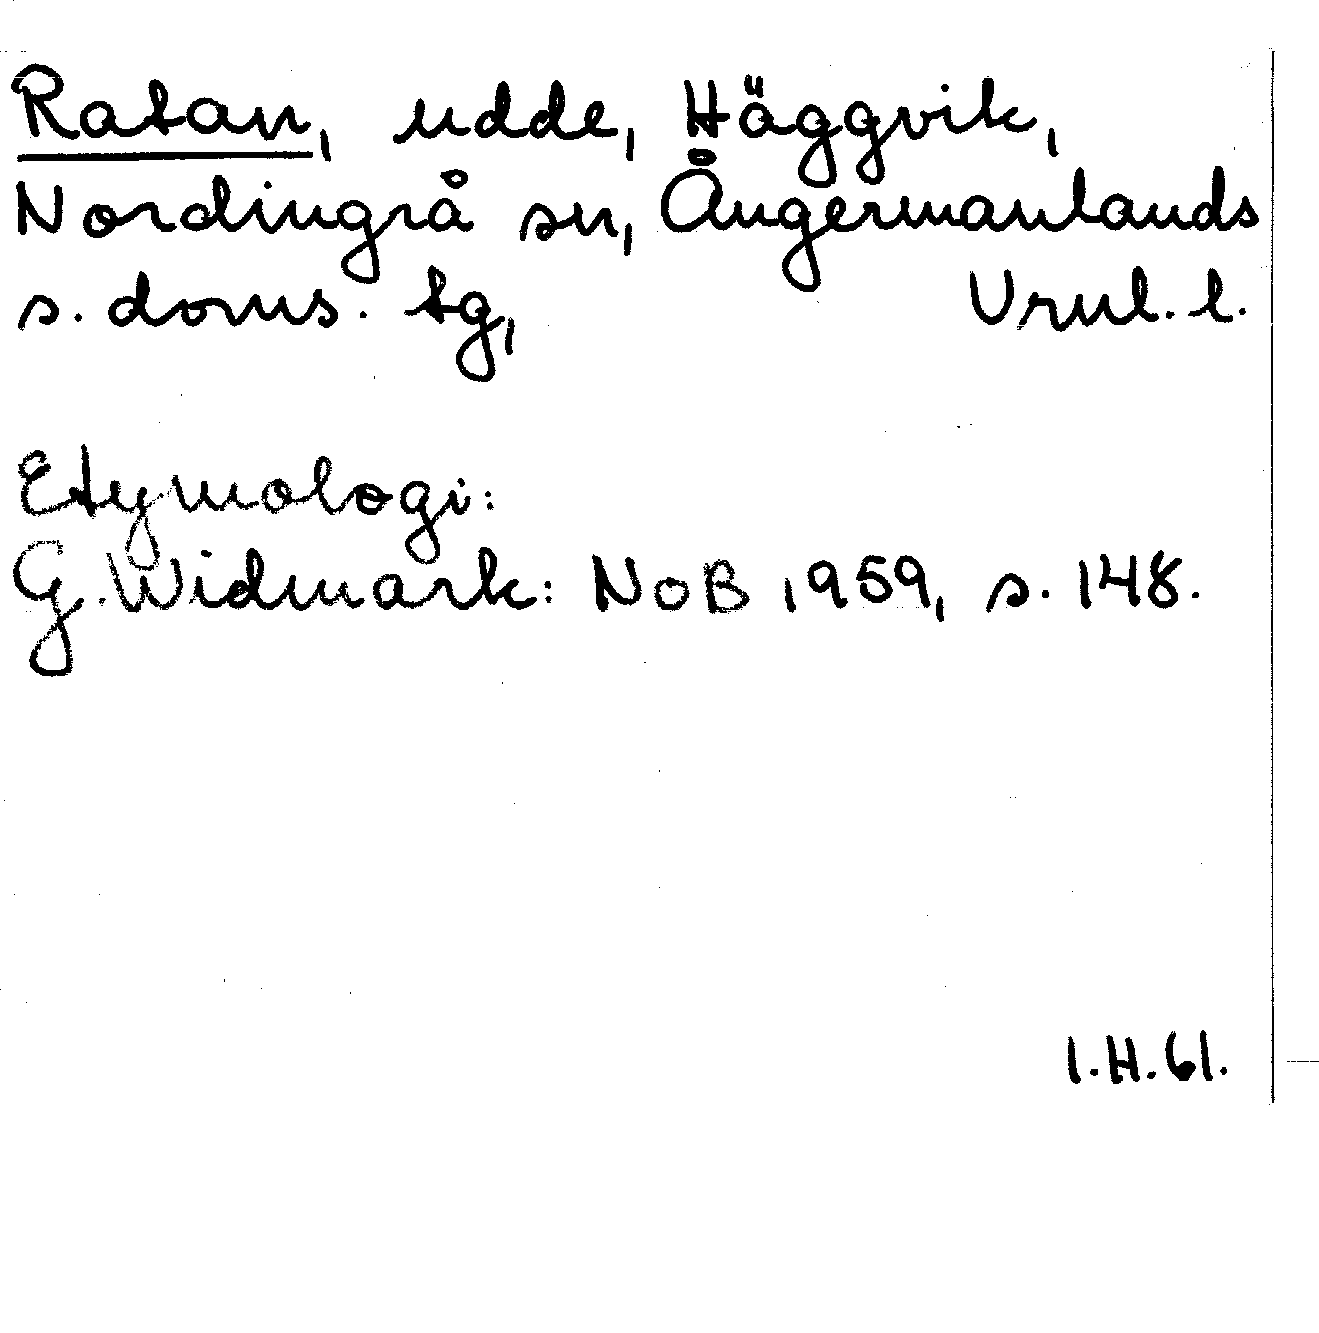 Ratan, udde, Häggvik,
Nordingrå sn, Ångermanlands
s. doms. tg, Vrnl. l.
Etymologi:
G. Widmark: NoB 1959, s. 148.
1.H.61.